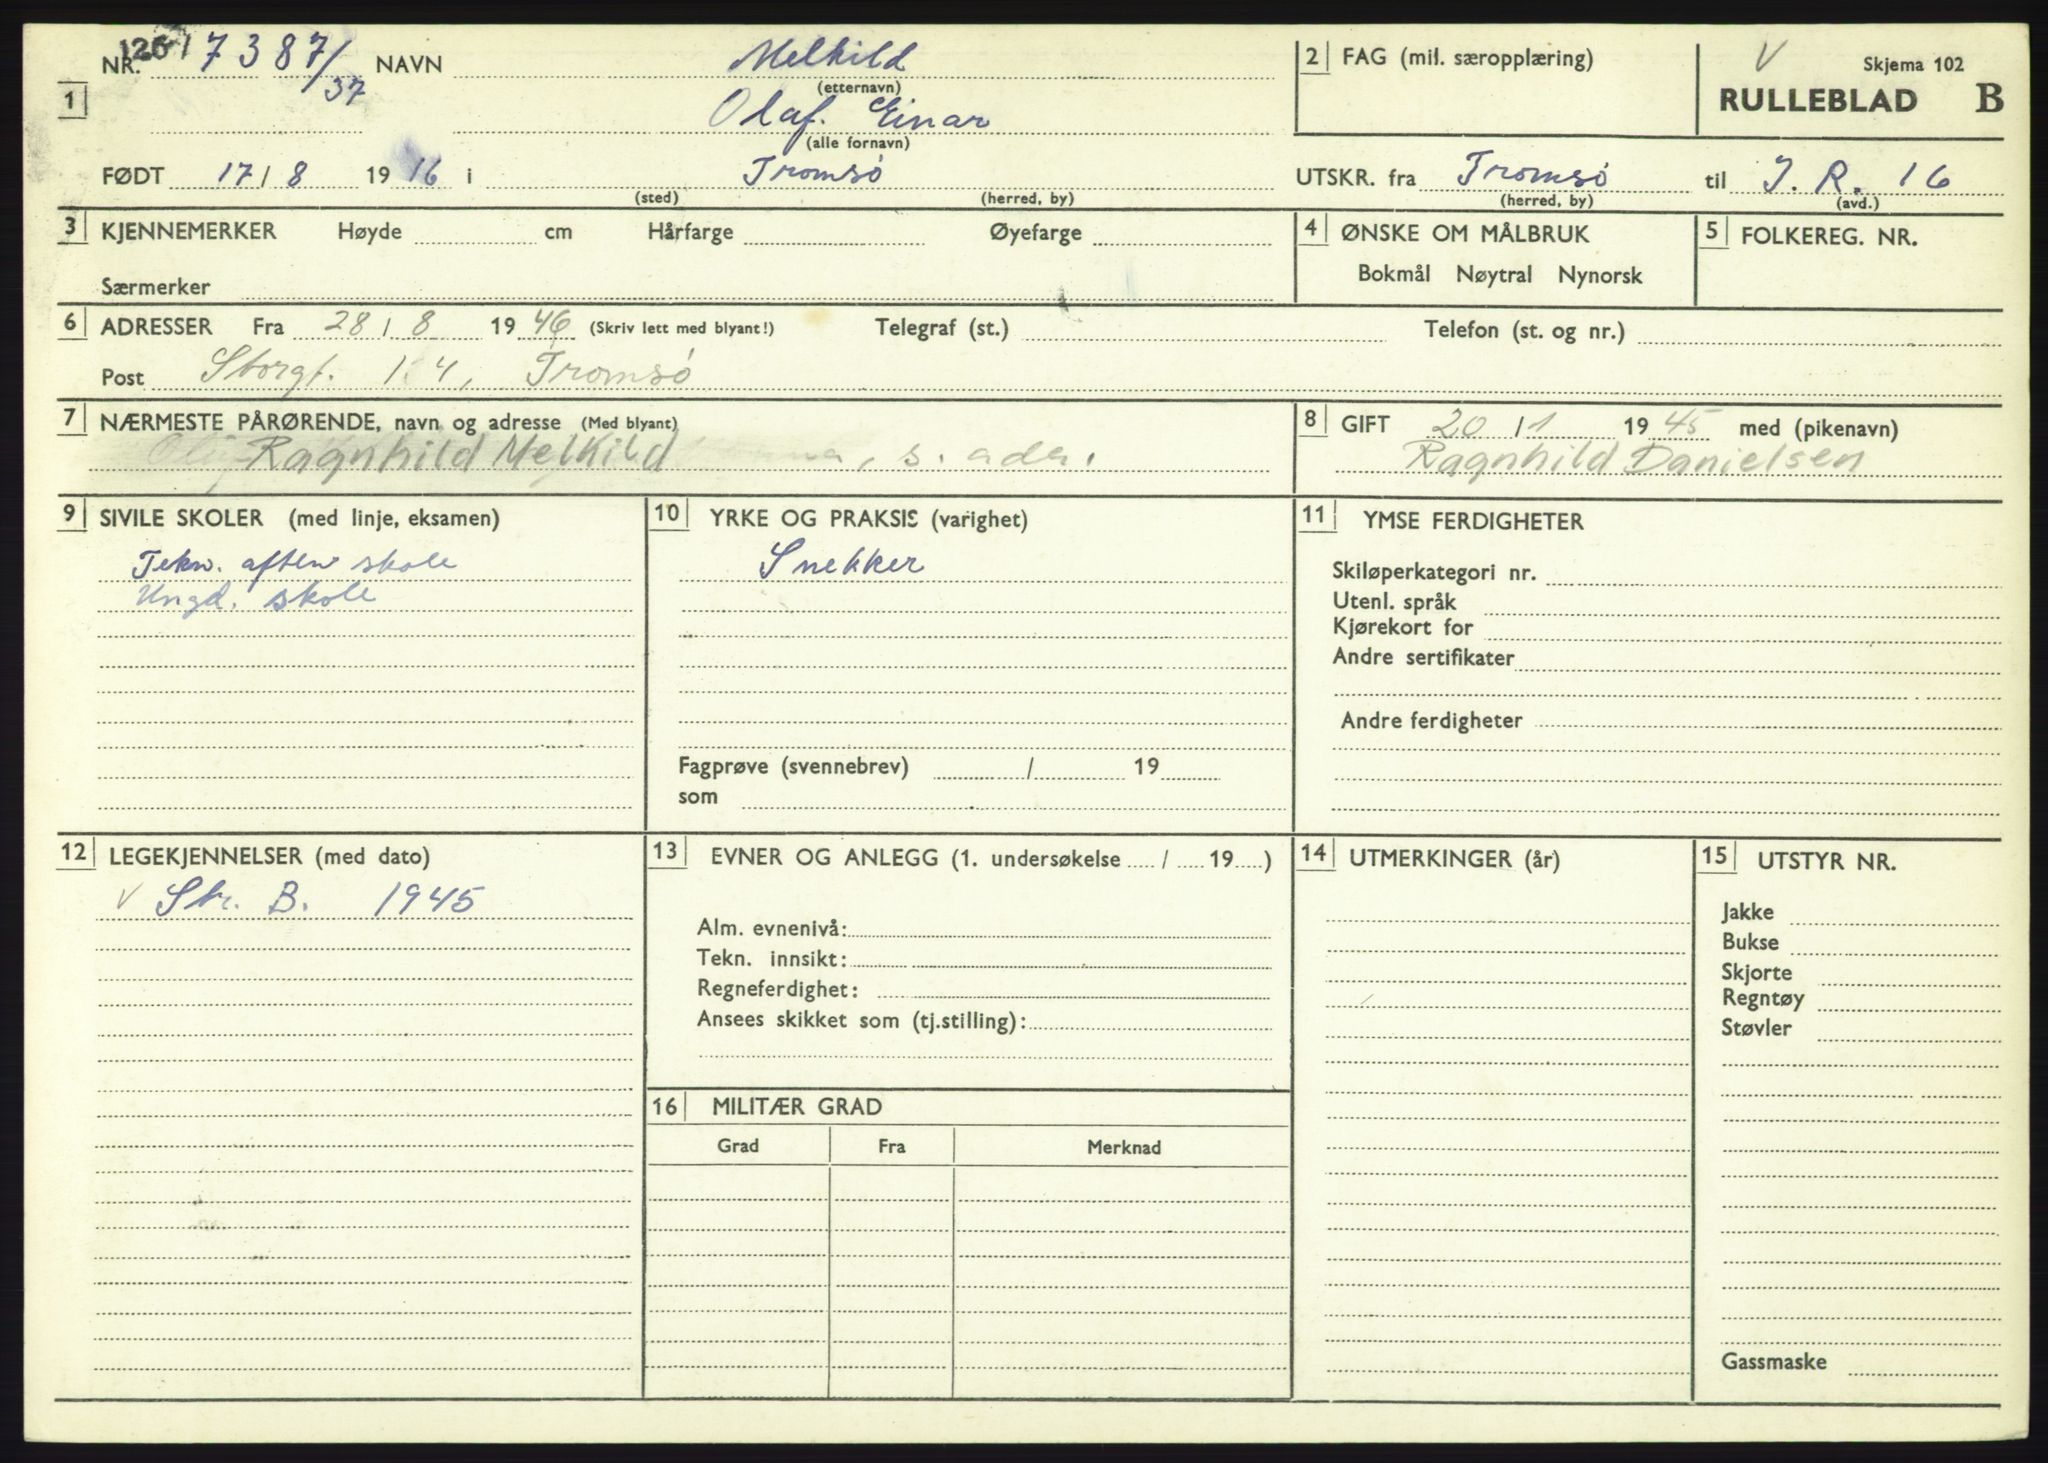 1261 7387/37
NR. NAVN Melkild
(etternavn)
1
Olaf. Einar
(alle fornavn)
FØDT 17/8 1916 i Tromsø
(sted) (herred, by)
2 FAG (mil. særopplæring)
V Skjema 102
RULLEBLAD B
UTSKR. fra Tromsø til J. R. 16
(herred, by) (avd.)
3 KJENNEMERKER Høyde cm Hårfarge Øyefarge
Særmerker
4 ØNSKE OM MÅLBRUK
Bokmål Nøytral Nynorsk
5 FOLKEREG. NR.
6 ADRESSER Fra 28/8 1946 (Skriv lett med blyant!) Telegraf (st.) Telefon (st. og nr.)
Post Storgt. Tromsø
7 NÆRMESTE PÅRØRENDE, navn og adresse (Med blyant)
Ragnhild Melkild s. adr.
8 GIFT 20/1 1945 med (pikenavn)
Ragnhild Danielsen
9 SIVILE SKOLER (med linje, eksamen)
Tekn. aften skole
Ungd. skole
10 YRKE OG PRAKSIS (varighet)
Snekker
Fagprøve (svennebrev) / 19
som
11 YMSE FERDIGHETER
Skiløperkategori nr.
Utenl. språk
Kjørekort for
Andre sertifikater
Andre ferdigheter
12 LEGEKJENNELSER (med dato)
V Str. B. 1945
13 EVNER OG ANLEGG (1. undersøkelse / 19 )
Alm. evnenivå:
Tekn. innsikt:
Regneferdighet:
Ansees skikket som (tj.stilling):
16 MILITÆR GRAD
Grad Fra Merknad
14 UTMERKINGER (år)
15 UTSTYR NR.
Jakke
Bukse
Skjorte
Regntøy
Støvler
Gassmaske